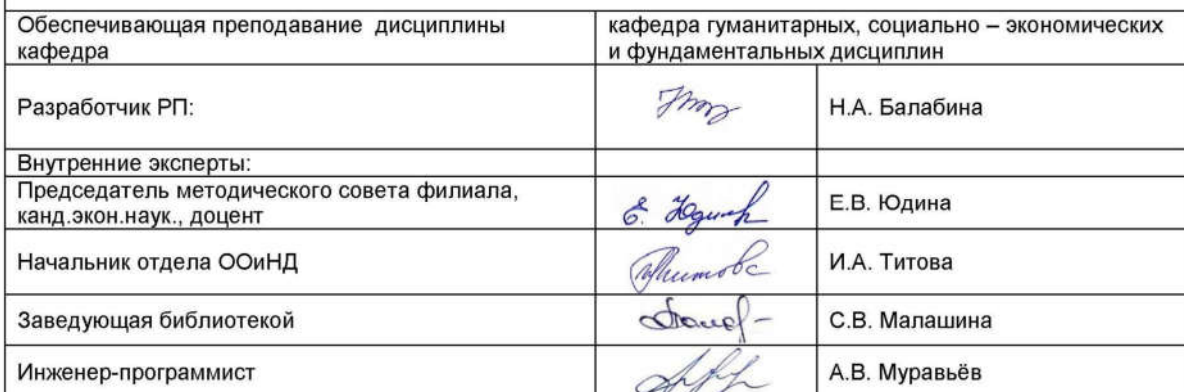 Обеспечивающая преподавание дисциплины
кафедра
кафедра гуманитарных, социально – экономических
и фундаментальных дисциплин
Разработчик РП:
Н.А. Балабина
Внутренние эксперты:
Председатель методического совета филиала,
канд.экон.наук., доцент
Е. Юдина
Е.В. Юдина
Начальник отдела ООиНД
Титова
И.А. Титова
Заведующая библиотекой
С.В. Малашина
Инженер-программист
А.В. Муравьёв